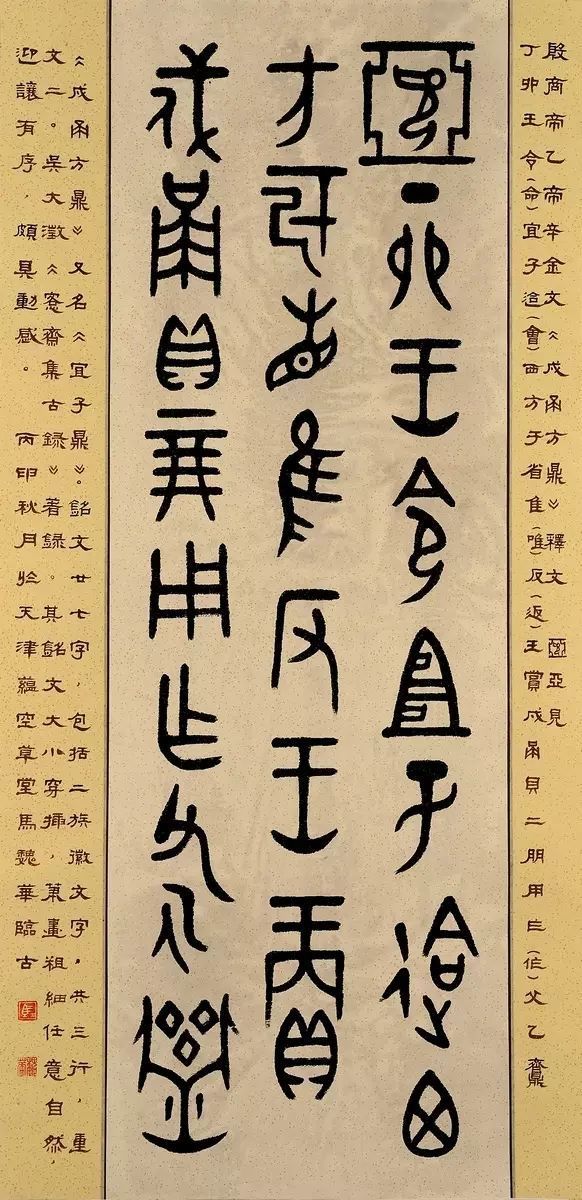 殷商帝乙帝辛金文《戍甬方鼎》釋文 亞見
丁卯王令(命)宜子迨(會)西方于省隹(唯)反(返)王賞戍甬貝二朋用乍(作)父乙
丁卯王令宜子迨西
方于省隹反王賞
戍甬貝二朋用乍父乙
《戍甬方鼎》又名《宜子鼎》。銘文廿七字，包括二族徽文字，共三行，重
文二。吳大澂《愙齋集古錄》著錄。其銘文大小穿插，筆畫粗細任意自然，
迎讓有序，頗具動感。 丙申秋月於天津蘊空草堂馬魏華臨古